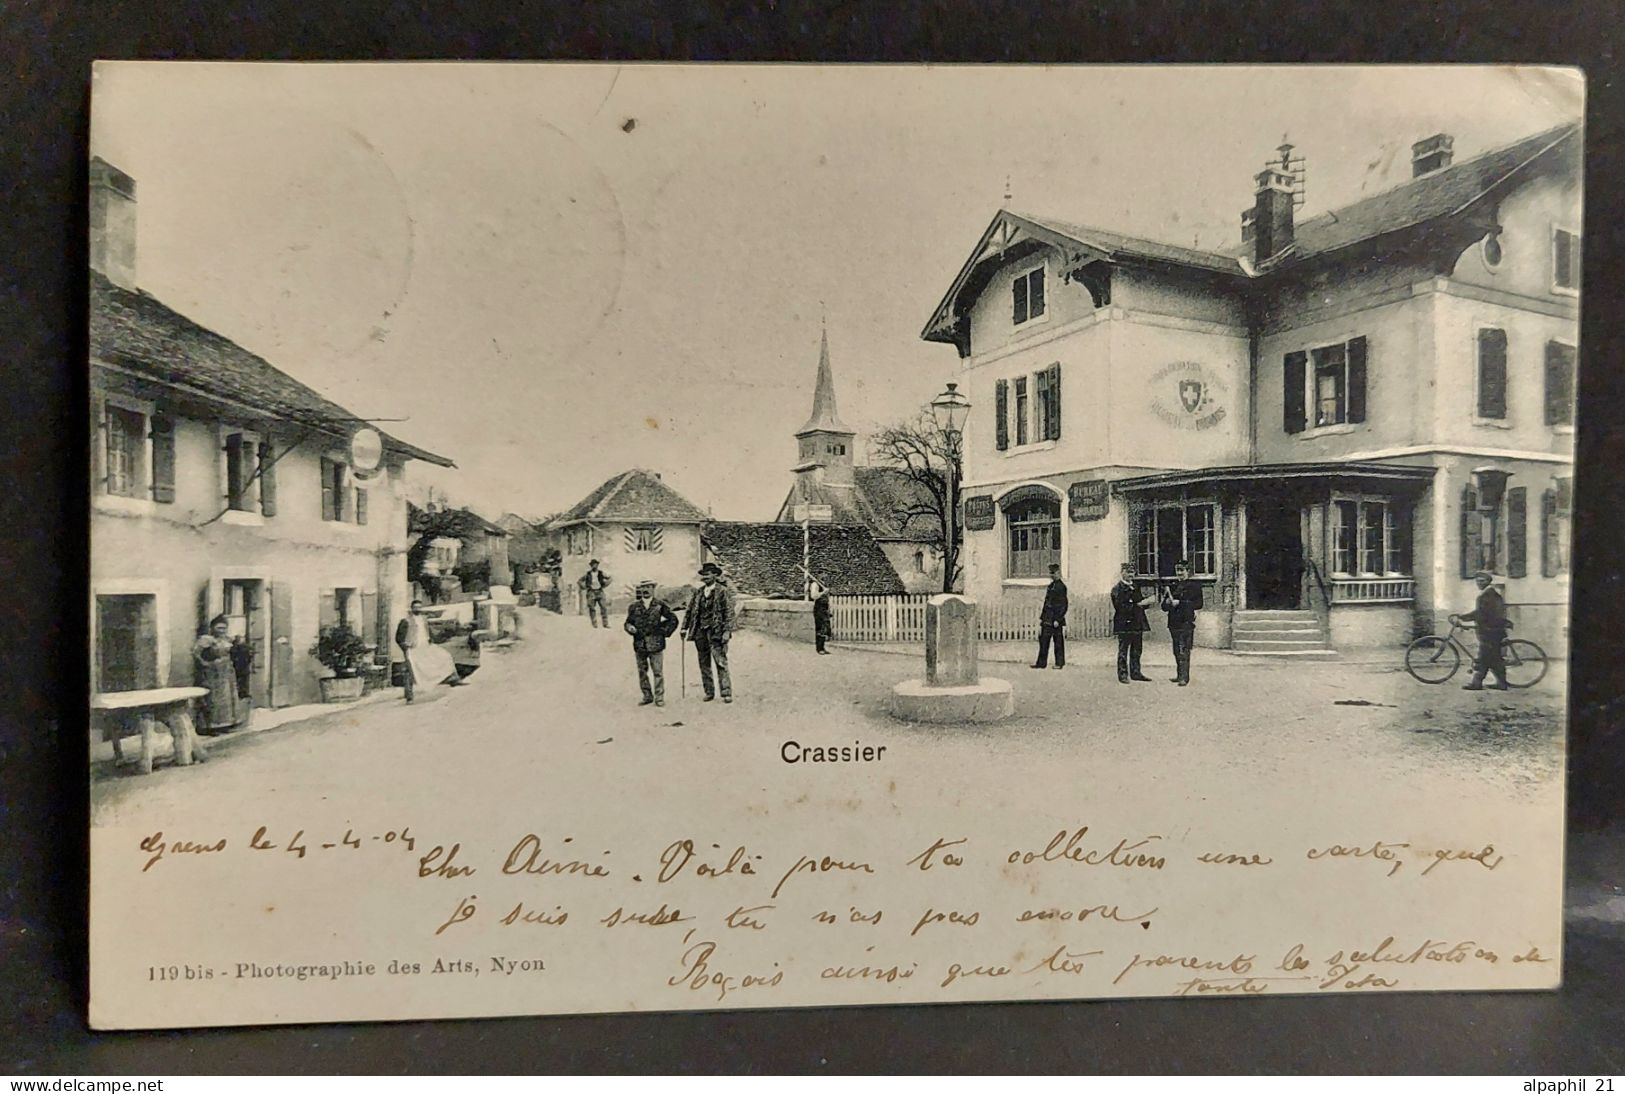 POSTES
BUREAU
DES
Crassier
Grens le 4-4-04
Cher Aimé. Voilà pour ta collection une carte, que
je suis sure, tu n'as pas encore.
Reçois ainsi que tes parents les salutation de
tante Ida
119 bis - Photographie des Arts, Nyon
www.delcampe.net
alpaphil 21